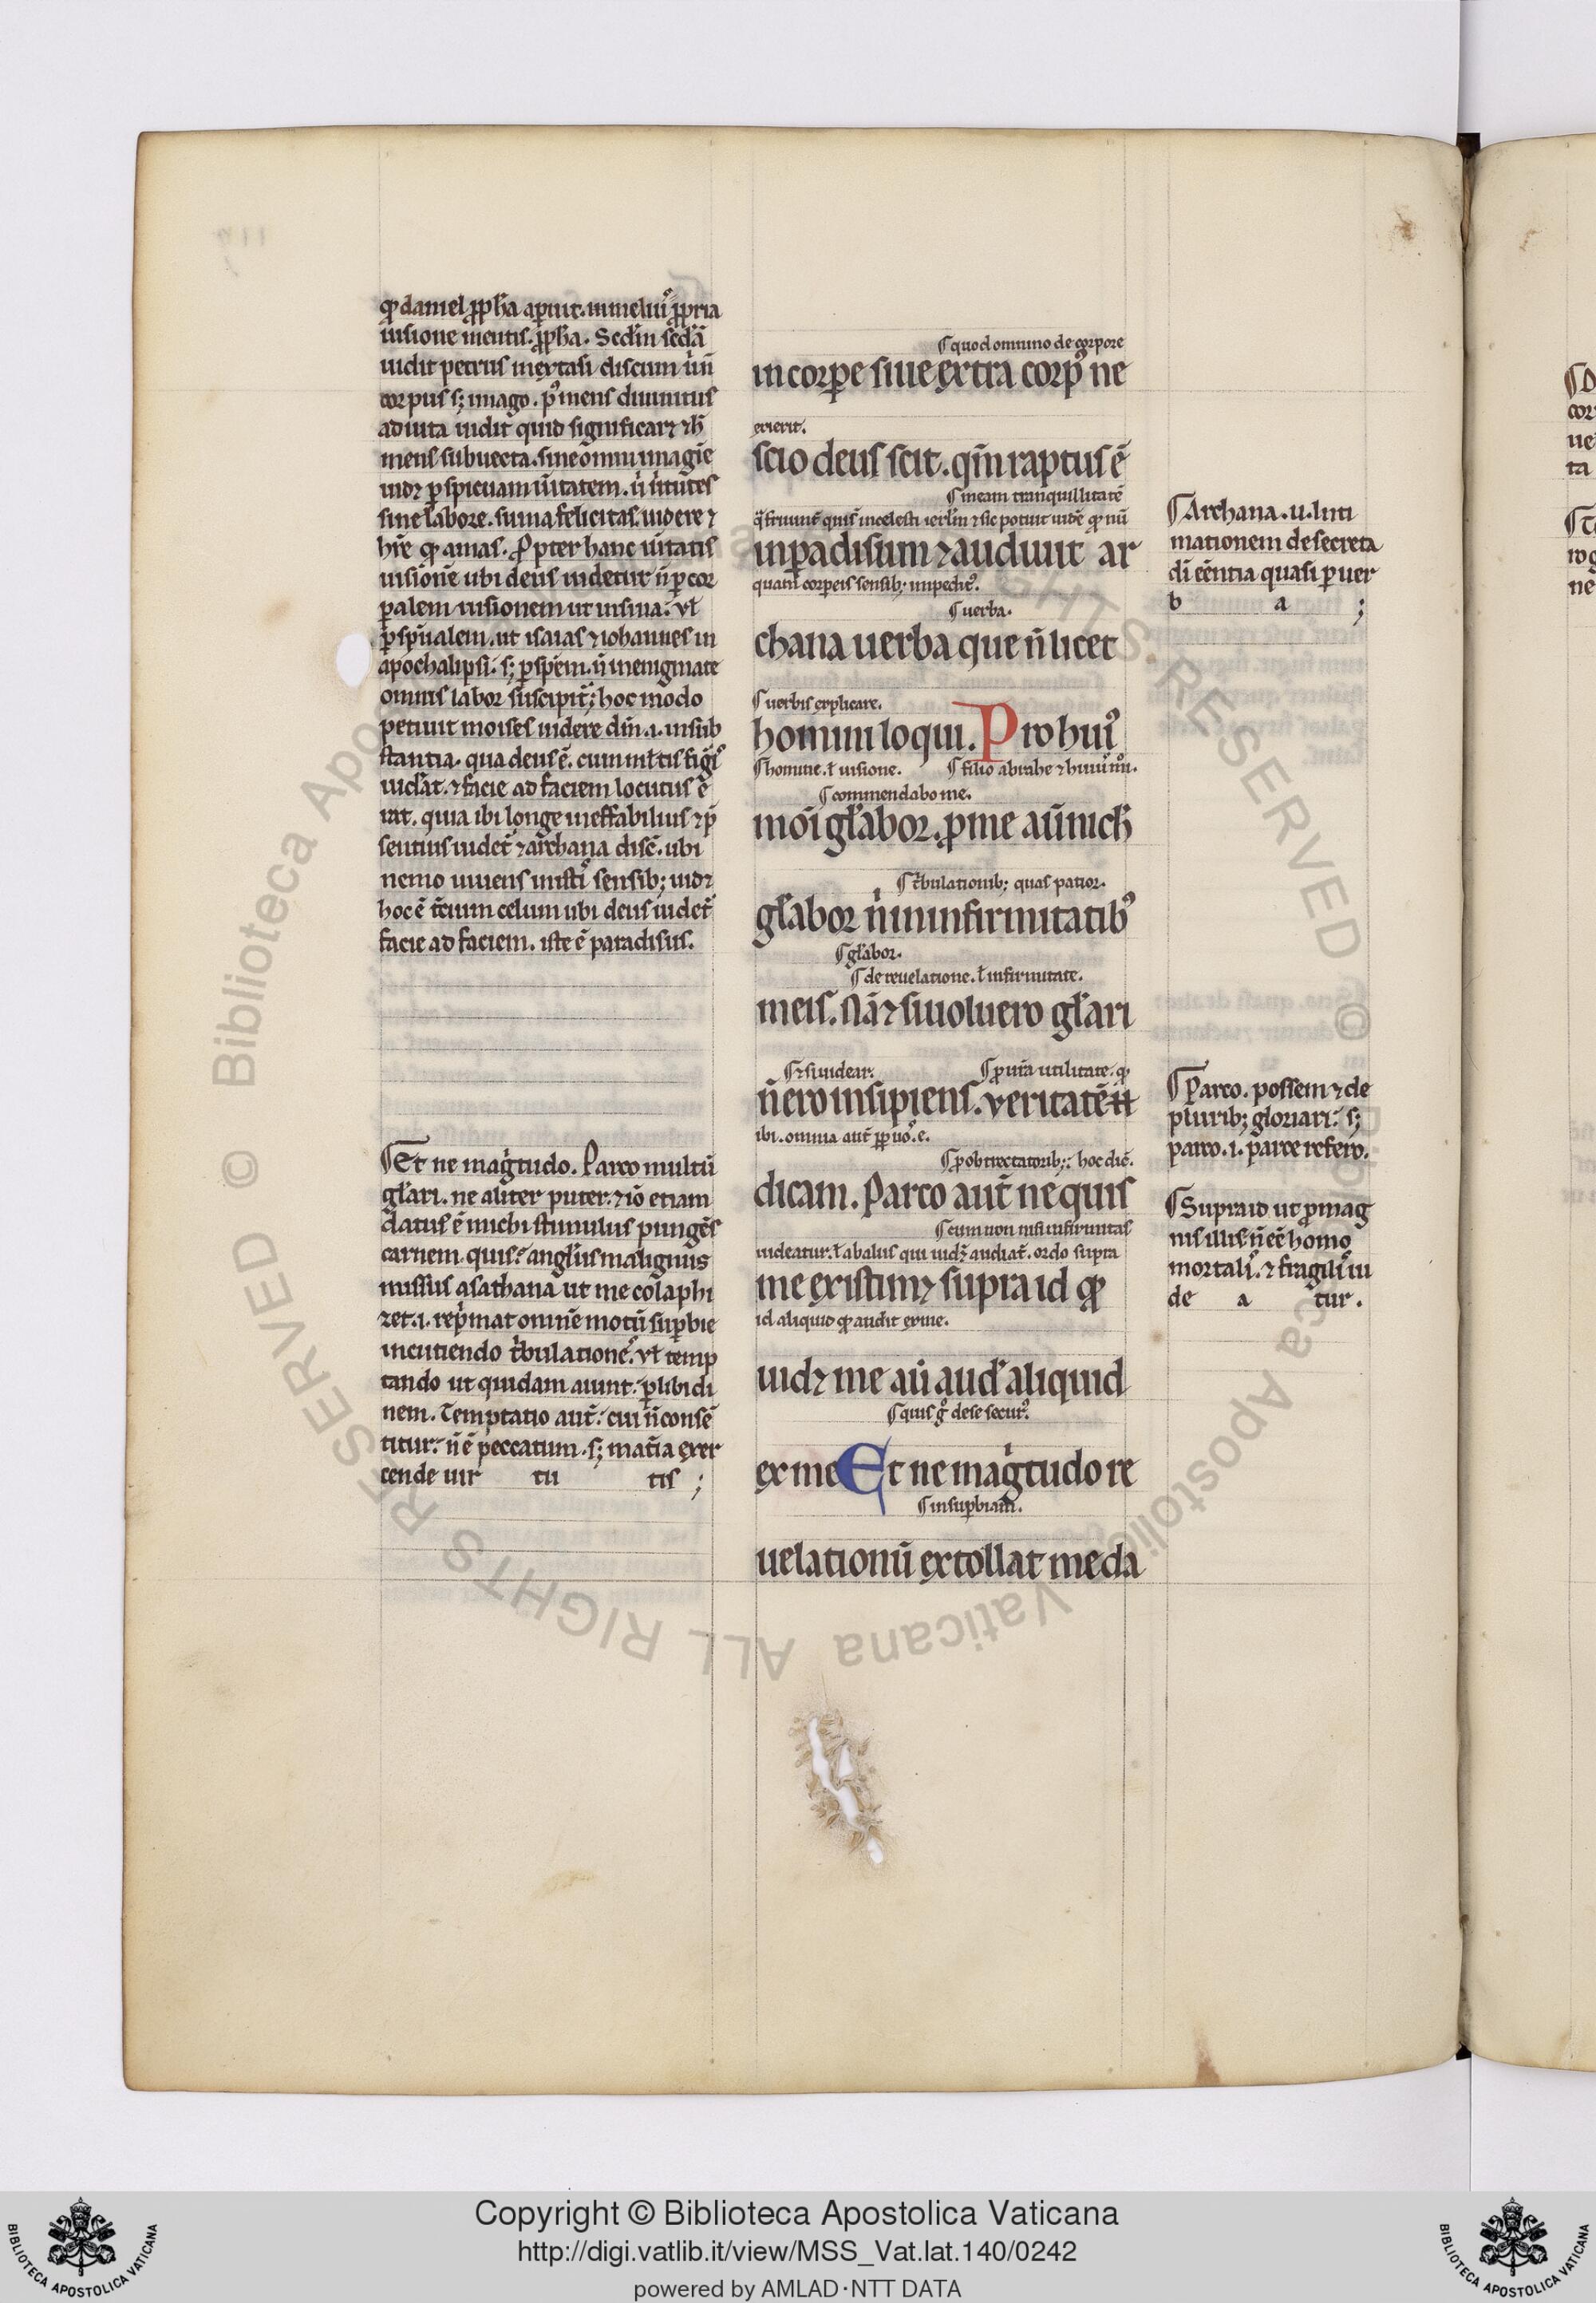 qd̛ daniel ꝓph̃a aperuit. ĩ meliu᷒ ꝓpria
uisione mentis. ꝓph̃a. Sed in sc̃da
uidit petrus in extasi discum ñ ut
corpus sꝫ imago. p᷒ mens diuinitus
adiuta uidit quid significaret
mens subuecta. sine omni imagĩe
uidꝫ ꝑspicuam ũitatem. ñ uirtutes
sine labore. suma felicitas. uidere ⁊
hr̃e qd̛ amas. Ꝓpter hanc ũitatis
uisionẽ ubi deus uidetur ñ ꝑ cor
ꝑalem uisionem ut in sina. uł
ꝑ spũalem. ut isaias ⁊ iohannes in
apochalipsi. sꝫ ꝑ spẽm. ñ in enigmate
omnis labor suscipit̃. hoc modo
petiuit moises uidere dñm .i. in sub
stantia. qua deus ẽ. cum mĩtis fig̃is
uid̃at. ⁊ facie ad faciem locutus ẽ
rat. quia ibi longe ineffabilius ⁊ p̃
sentius uidet̃ ⁊ archana disẽ. ubi
nemo uiuens in isti᷒ sensibꝫ uidꝫ
hoc ẽ t̃cium celum ubi deus uidet̃
facie ad faciem. iste ẽ paradisus.
¶ Et ne mag̃tudo. Parco multũ
gl̃ari. ne aliter putet. ⁊ iõ etiam
datus ẽ michi stimulus pungẽs
carnem. quis. angl̃us malignus
missus a sathana ut me colaphi
zet .i. rep̃mat omnẽ motũ suꝑbie
incutiendo t̃bulationẽ. uł temp
tando ut quidam aiunt. ꝑ libidi
nem. Temptatio aut̃. cui ñ consẽ
titur. ñ ẽ peccatum. sꝫ mat̃ia exer
cende uir tu tis ;
¶ quod omnino de corpore
in corpe siue extra corp᷒ ne
exierit.
scio deus scit. qm̃ raptus ẽ
¶ in eam tranquillitatẽ
q̃ fruunt̃ qui s̃t in celesti ierl̃m ⁊ sic potuit uidẽ qd̛ nũ
in ꝑadisum ⁊ audiuit ar
quam corpeis sensibꝫ impedit᷒.
¶ uerba.
chana uerba que ñ licet
¶ uerbis explicare.
homini loqui. Pro hui᷒
¶ homine. ł uisione. ¶ filio abrahe ⁊ hui᷒ mõi.
¶ commendabo me.
mõi gl̃abor. ꝓ me aũ nich̃
¶ t̃bulationibꝫ quas patior.
gl̃abor ñ in infirmitatib᷒
¶ gl̃abor.
¶ de reuelatione. ł infirmitate.
meis. Nã ⁊ si uoluero gl̃ari
¶ ⁊ si uidear. ¶ ꝓ ur̃a utilitate. qd̛
ñ ero insipiens. veritatẽ .n.
ibi. omnia aut̃ ꝓp̃ uo᷒. e.
¶ ꝓ obtrectatoribꝫ. hoc dic̃.
dicam. Parco aut̃ ne quis
¶ cum non nisi infirmitas
uideatur. ł ab aliis qui uidꝫ audiat̃. ordo supra
me existimꝫ supra id qd̛
id aliquid qd̛ audit ex me.
uidꝫ me aũ aud̃ aliquid
¶ quis g̊ de se secur᷒.
ex me Et ne mag̃tudo re
¶ in suꝑbiam.
uelationũ extollat me da
¶ Archana. u. inti
mationem de secreta
di ẽentia quasi ꝑ uer
b a ;
¶ Parco. possem ⁊ de
pluribꝫ gloriari. sꝫ
parco .i. parce refero.
¶ Supra id ut ꝓ mag
nis illis ñ ẽẽ homo
mortali᷒. ⁊ fragili᷒ ui
de a tur.
Copyright © Biblioteca Apostolica Vaticana
http://digi.vatlib.it/view/MSS_Vat.lat.140/0242
powered by AMLAD·NTT DATA